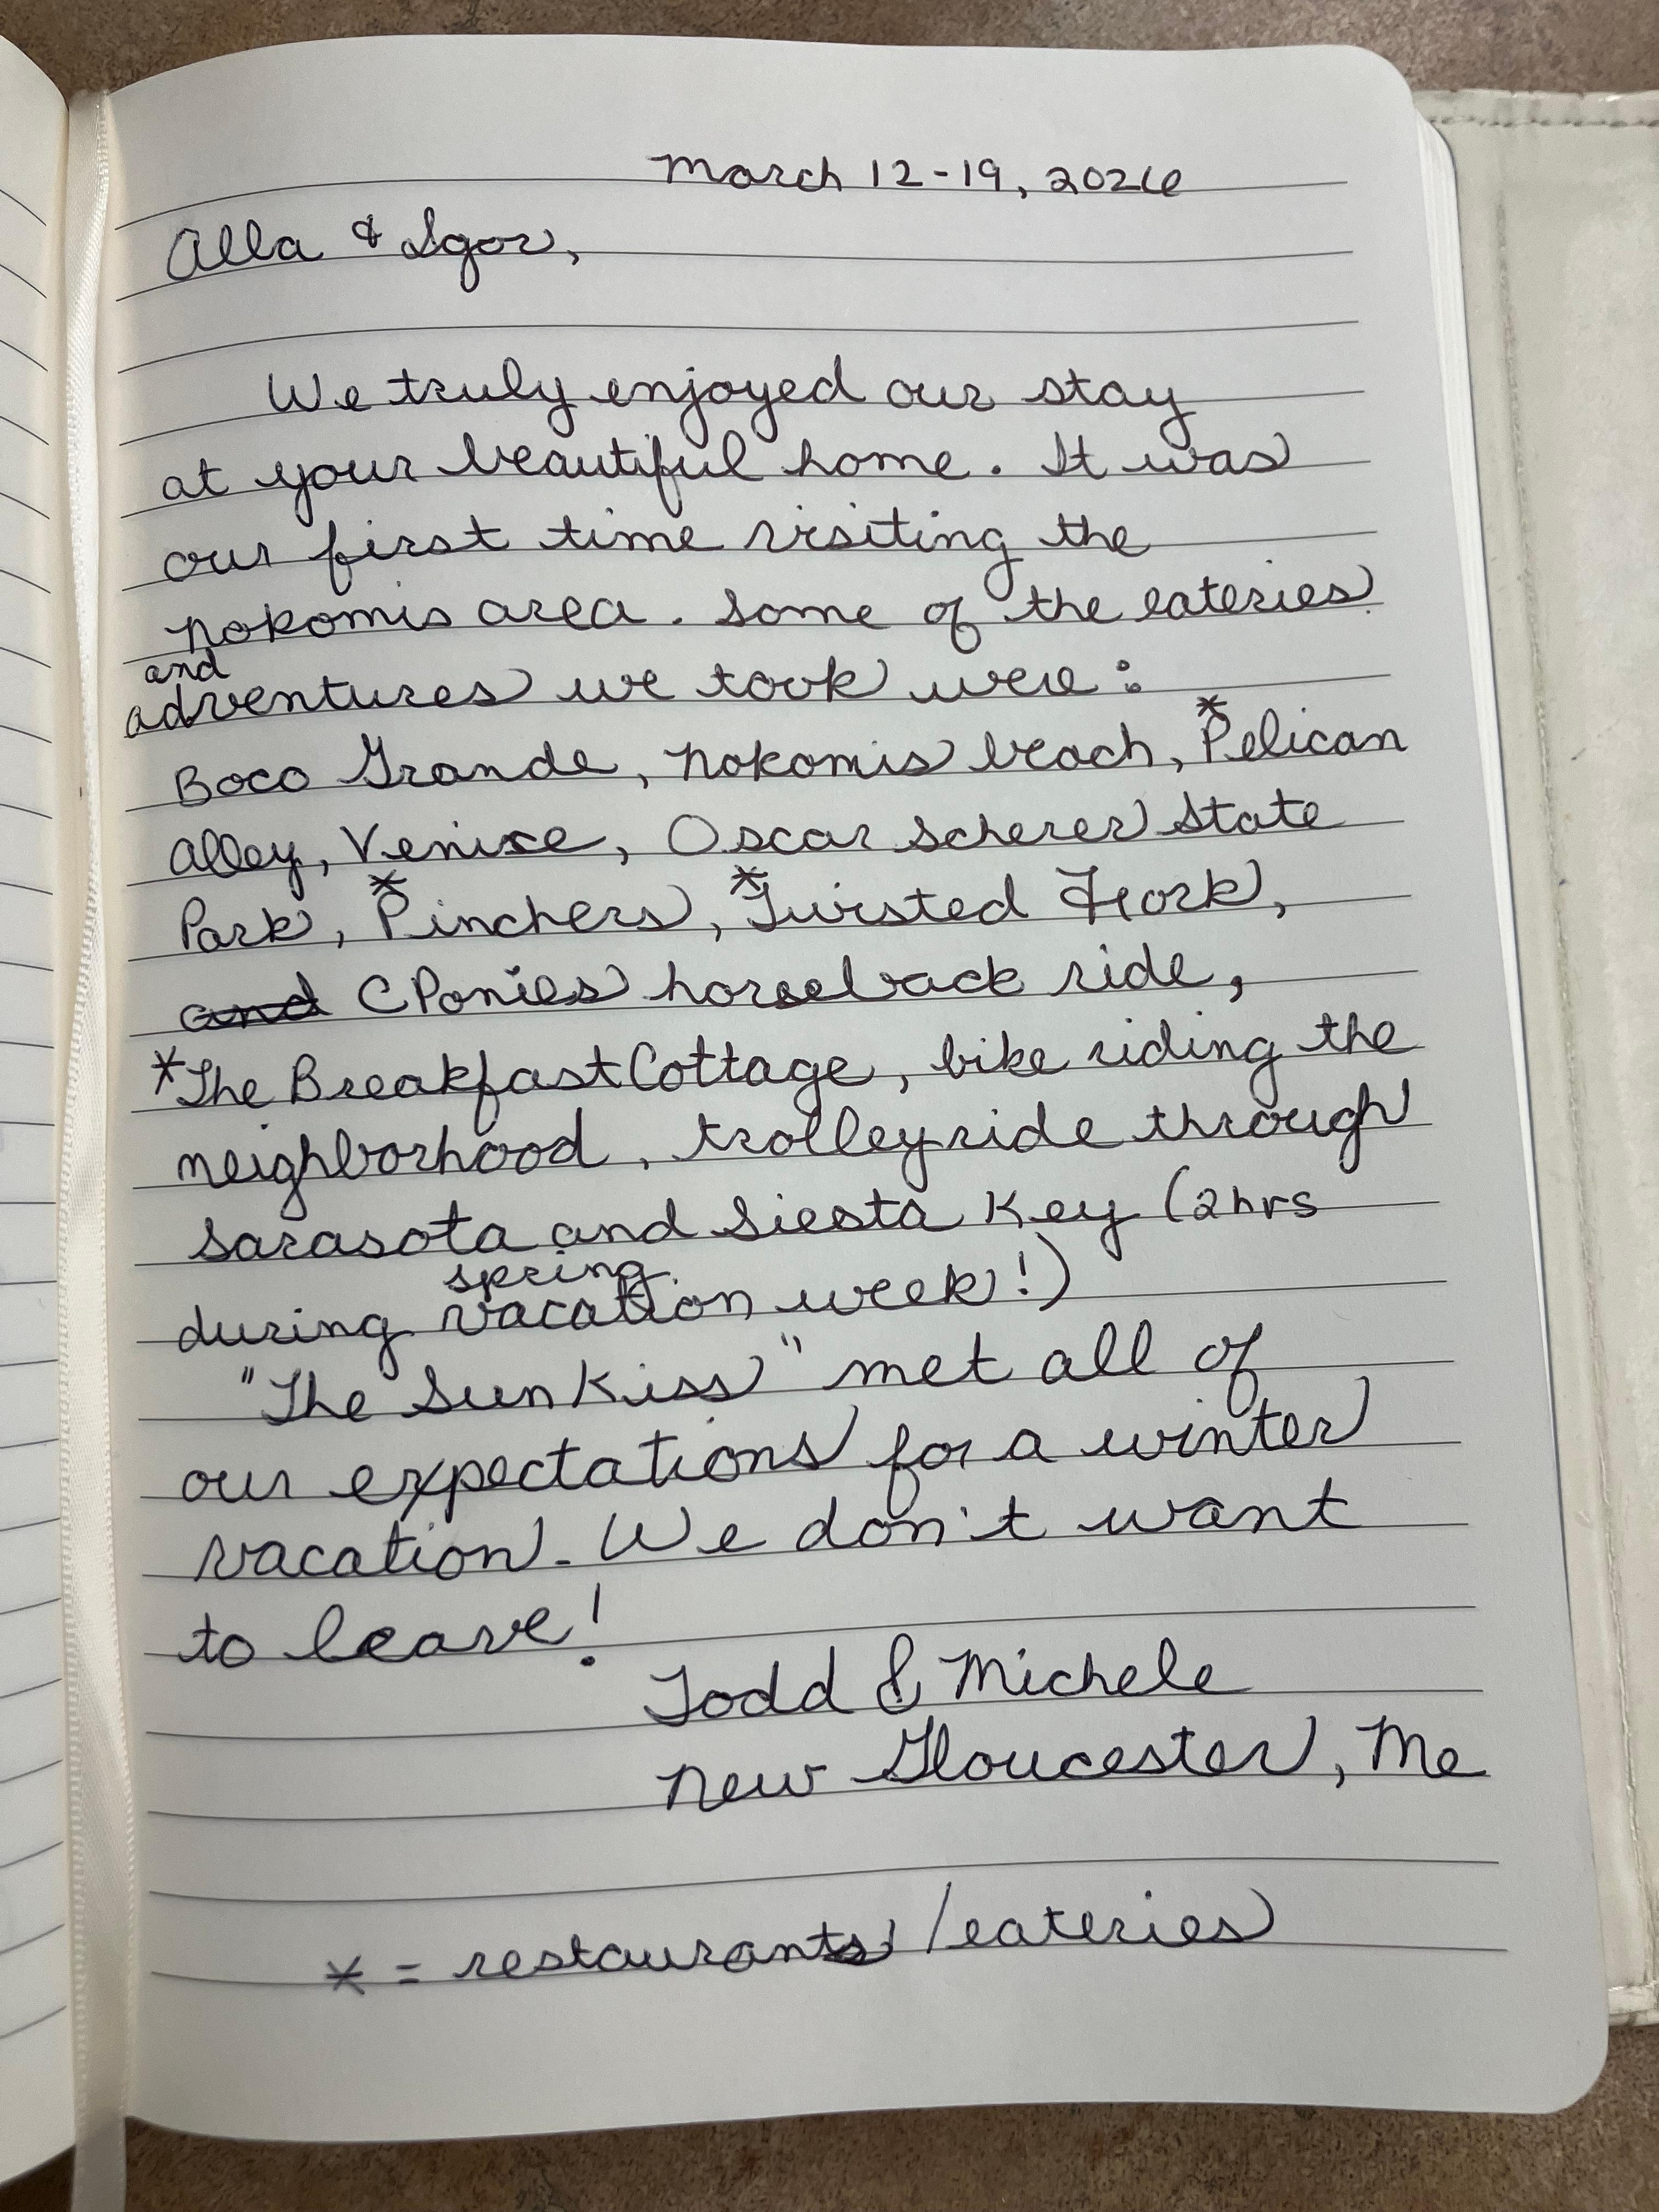 March 12-19, 2026
Alla & Igor,
We truly enjoyed our stay
at your beautiful home. It was
our first time visiting the
Nokomis area. Some of the eateries
and
adventures we took were:
Boco Grande, Nokomis beach, *Pelican
Alley, Venice, Oscar Scherer State
Park, *Pinchers, *Twisted Fork,
and CPonies horseback ride,
*The Breakfast Cottage, bike riding the
neighborhood, trolley ride through
Sarasota and Siesta Key (2 hrs
spring
during vacation week!)
"The Sun Kiss" met all of
our expectations for a winter
vacation. We don't want
to leave!
Todd & Michele
New Gloucester, Me
* = restaurants/eateries